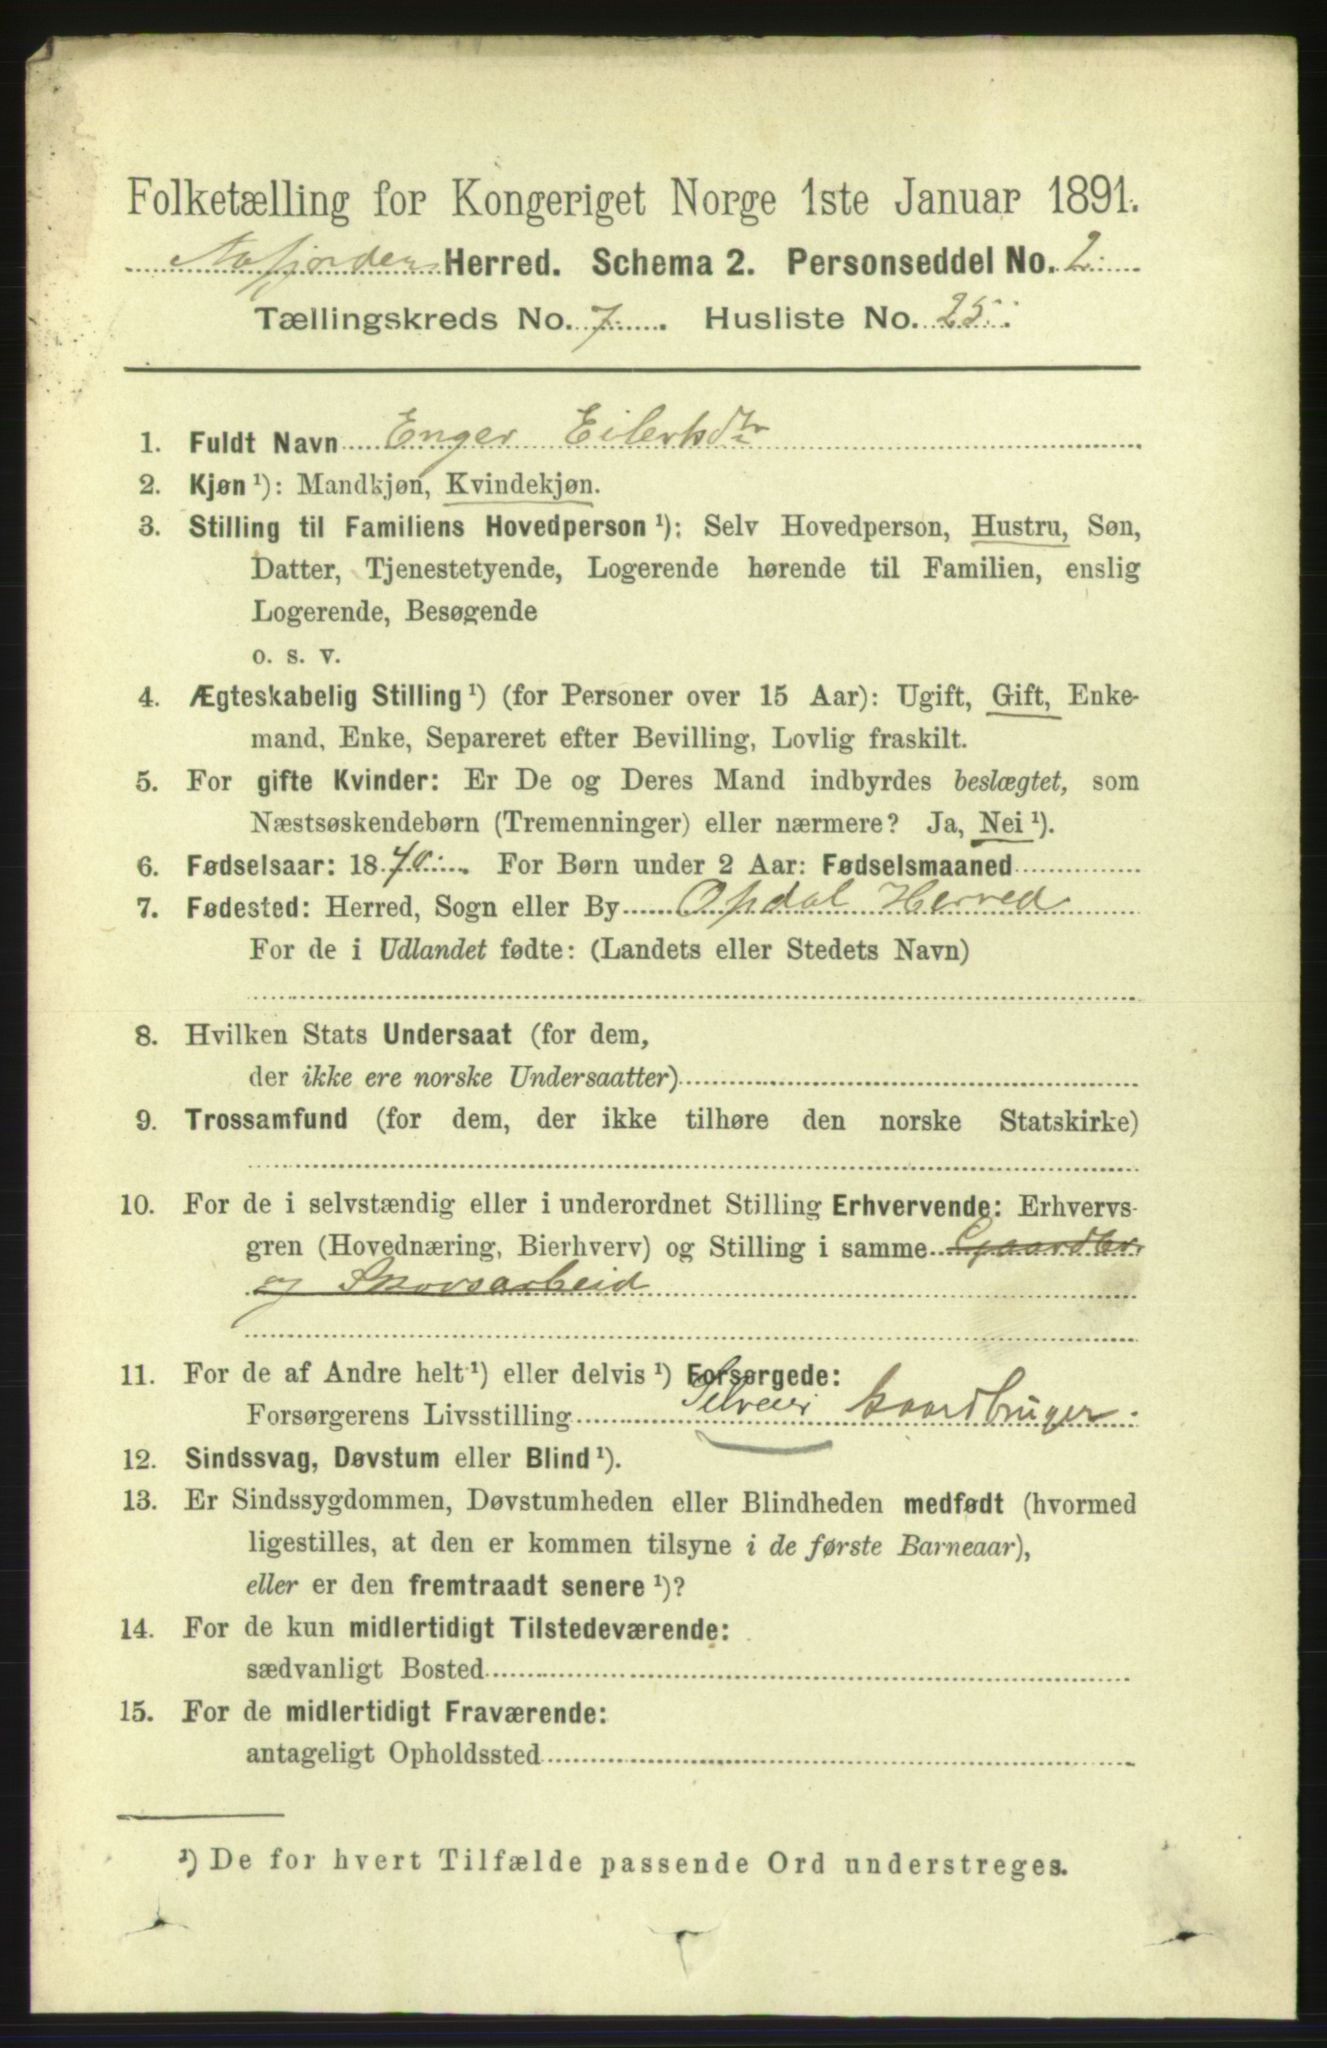 Folketælling for Kongeriget Norge 1ste Januar 1891.
Herred. Schema 2. Personseddel No. 2
Tællingskreds No. 7. Husliste No. 25
1. Fuldt Navn Enger Eilertsdtr
2. Kjøn ¹): Mandkjøn, Kvindekjøn.
3. Stilling til Familiens Hovedperson ¹): Selv Hovedperson, Hustru, Søn,
Datter, Tjenestetyende, Logerende hørende til Familien, enslig
Logerende, Besøgende
o. s. v.
4. Ægteskabelig Stilling ¹) (for Personer over 15 Aar): Ugift, Gift, Enke-
mand, Enke, Separeret efter Bevilling, Lovlig fraskilt.
5. For gifte Kvinder: Er De og Deres Mand indbyrdes beslægtet, som
Næstsøskendebørn (Tremenninger) eller nærmere? Ja, Nei ¹).
6. Fødselsaar: 1840. For Børn under 2 Aar: Fødselsmaaned
7. Fødested: Herred, Sogn eller By Opdal Herred
For de i Udlandet fødte: (Landets eller Stedets Navn)
8. Hvilken Stats Undersaat (for dem,
der ikke ere norske Undersaatter)
9. Trossamfund (for dem, der ikke tilhøre den norske Statskirke)
10. For de i selvstændig eller i underordnet Stilling Erhvervende: Erhvervs-
gren (Hovednæring, Bierhverv) og Stilling i samme Gaardbr.
og Skovsarbeid
11. For de af Andre helt ¹) eller delvis ¹) Forsørgede:
Forsørgerens Livsstilling Selveier Gaardbruger.
12. Sindssvag, Døvstum eller Blind ¹).
13. Er Sindssygdommen, Døvstumheden eller Blindheden medfødt (hvormed
ligestilles, at den er kommen tilsyne i de første Barneaar),
eller er den fremtraadt senere ¹)?
14. For de kun midlertidigt Tilstedeværende:
sædvanligt Bosted
15. For de midlertidigt Fraværende:
antageligt Opholdssted
¹) De for hvert Tilfælde passende Ord understreges.